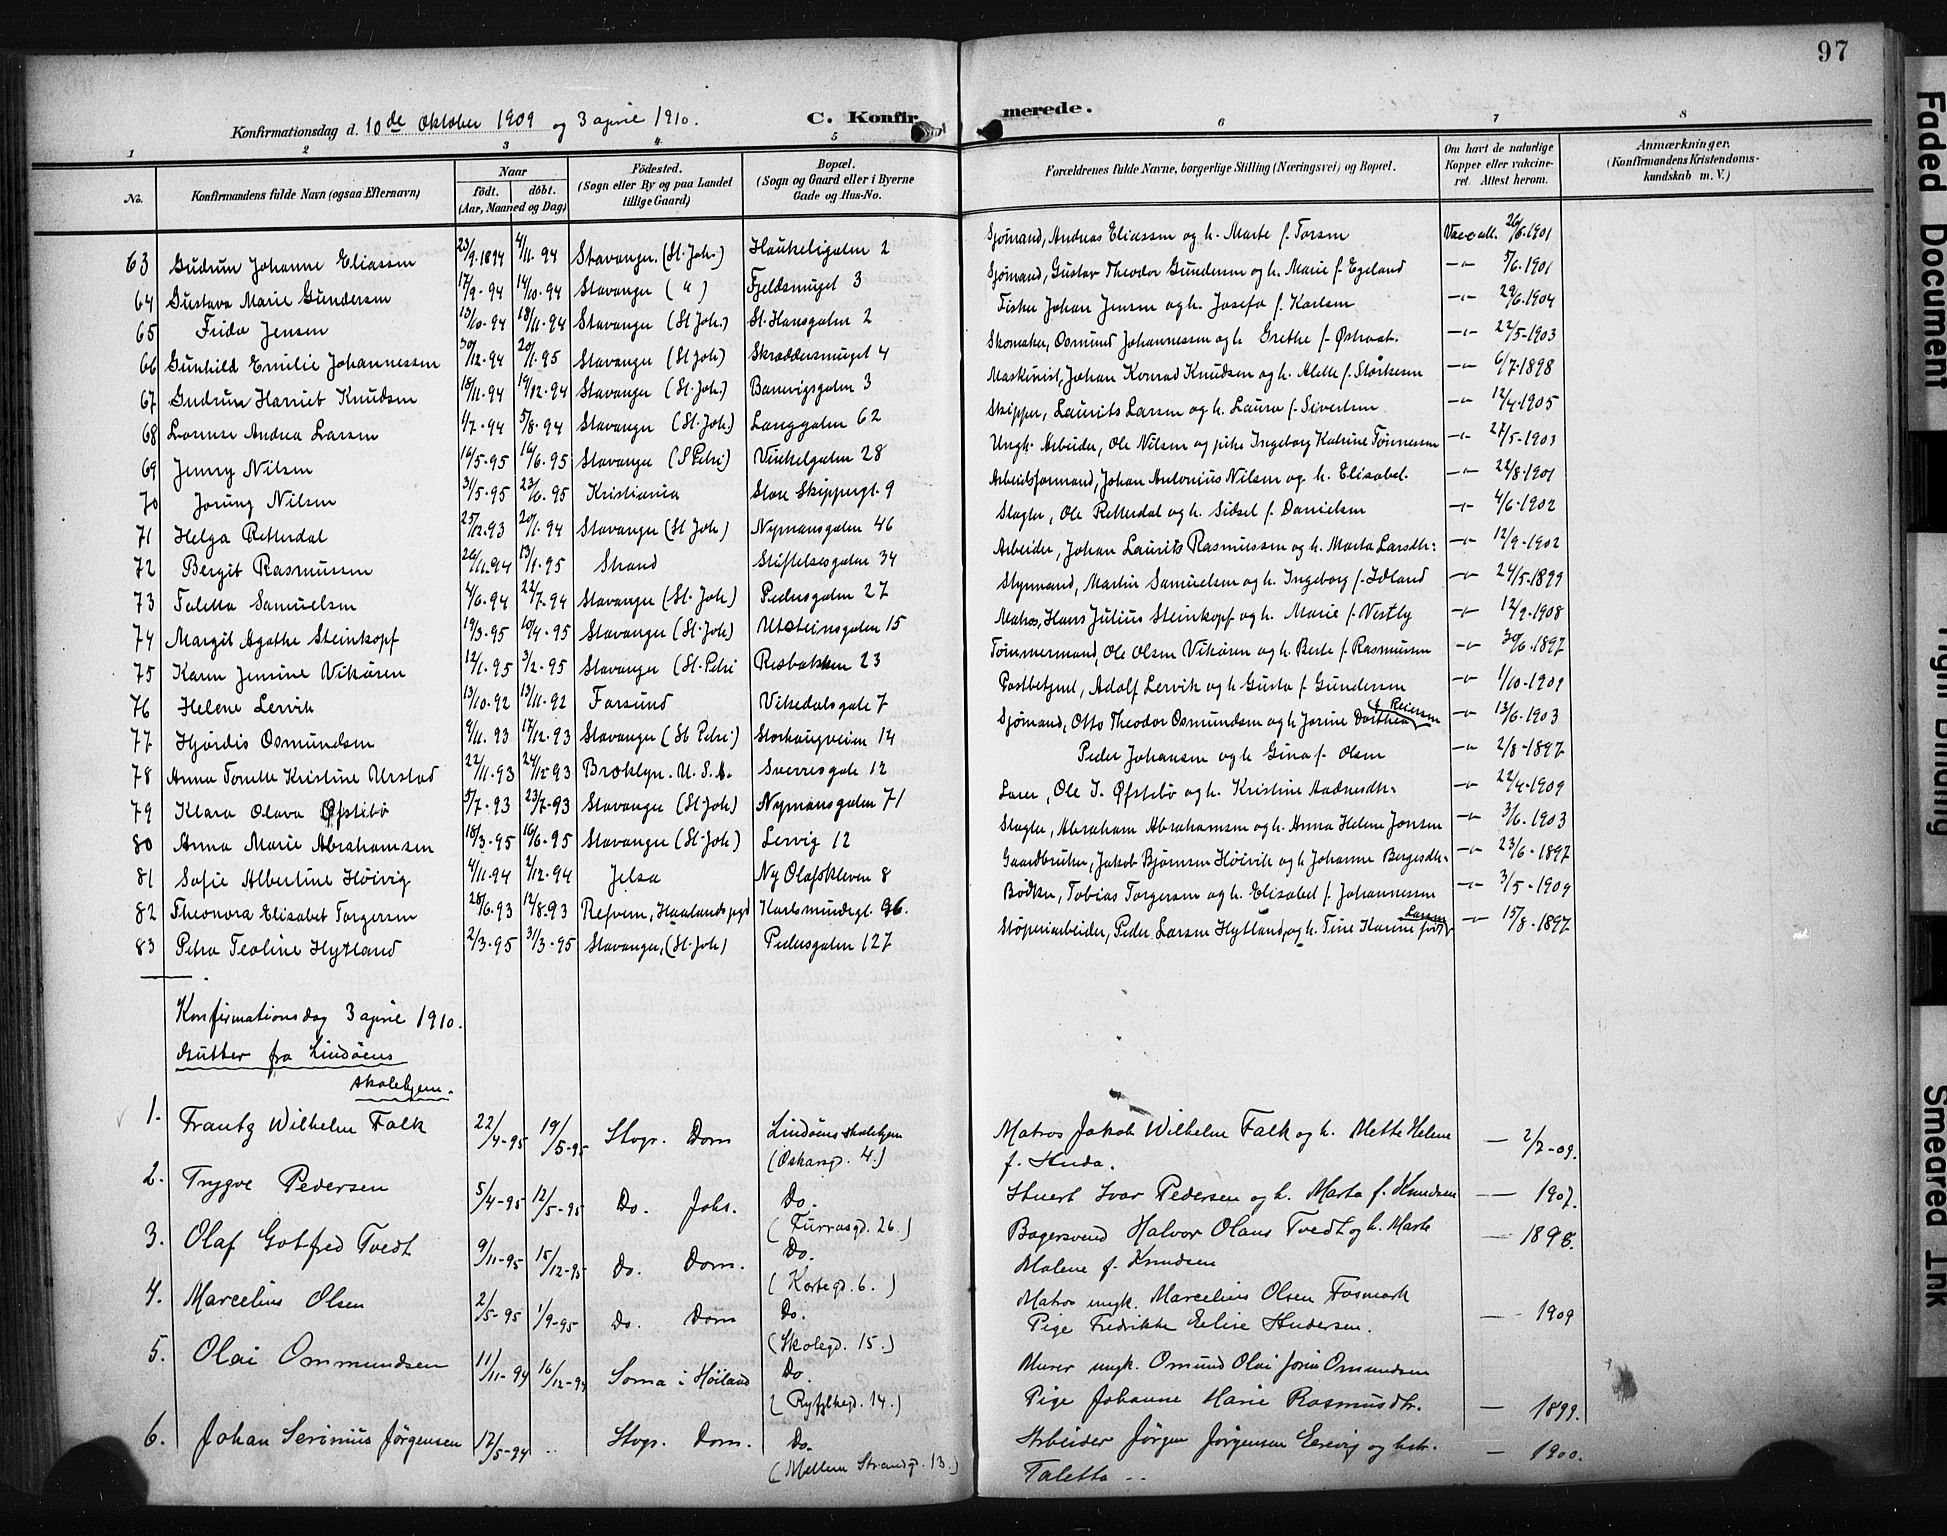 97
Konfirmationsdag d. 10de Oktober 1909 og 3 april 1910.
C. Konfirmerede.
1 2 3 4 5 6 7 8
No.
Konfirmandens fulde Navn (ogsaa Efternavn)
Naar
födt. döbt.
(Aar, Maaned og Dag)
Födested.
(Sogn eller By og paa Landet
tillige Gaard)
Bopæl.
(Sogn og Gaard eller i Byerne
Gade og Hus-No.
Forældrenes fulde Navne, borgerlige Stilling (Næringsvei) og Bopæl.
Om havt de naturlige
Kopper eller vakcine-
ret. Attest herom.
Anmærkninger.
(Konfirmandens Kristendoms-
kundskab m. V.)
63 Gudrun Johanne Eliassen 23/9.1894 4/11.94 Stavanger. (St. Joh.) Haukeligaten 2 Sjömand, Andreas Eliassen og h. Marte f. Torsen Vacc att. 26/6.1901
64 Gustava Marie Gundersen 17/9-94 14/10.94 Stavanger ( " ) Fjeldsmuget 3 Sjömand, Gustav Theodor Gundersen og h. Marie f. Egeland -"- 5/6.1901
65 Frida Jensen 13/10.94 18/11.94 Stavanger (St Joh.) St. Hansgaten 2 Fisker Johan Jensen og h. Josefa f. Karlsen -"- 29/6.1904
66 Gunhild Emilie Johannessen 30/12.94 20/1.95 Stavanger (St Joh) Skræddersmuget 4 Skomaker, Osmund Johannessen og h. Grethe f. Østraat. -"- 22/5-1903
67 Gudrun Harriet Knudsen 18/11.94 19/12.94 Stavanger (St. Joh.) Banevigsgaten 3 Maskinist, Johan Konrad Knudsen og h. Alette f. Størkesen -"- 6/7-1898
68 Lovise Andrea Larsen 1/7-94 5/8-94 Stavanger (St. Joh.) Langgaten 62 Skipper, Laurits Larsen og h. Laura f. Sivertsen -"- 12/4-1905
69 Jenny Nilsen 16/5-95 16/6.95 Stavanger (S Petri) Vinkelgaten 28 Ungk. Arbeider, Ole Nilsen og pike Ingeborg Katrine Tønnessen -"- 27/5-1903
70 Jorung Nilsen 31/5-95 23/6.95 Kristiania Store Skippergt. 9 Arbeidsformand, Johan Antonius Nilsen og h. Elisabet. -"- 22/8-1901
71 Helga Retterdal 25/12.93 20/1.94 Stavanger (St Joh) Nymansgaten 46 Slagter, Ole Retterdal og h. Sidsel f. Danielsen -"- 4/6-1902
72 Bergit Rasmussen 26/11.94 13/1-95 Strand Stiftelsesgaten 34 Arbeider, Johan Laurits Rasmussen og h. Marta Larsdtr: -"- 12/9-1902
73 Taletta Samuelsen 4/6-94 22/7.94 Stavanger (St. Joh) Pedersgaten 27 Styrmand, Martin Samuelsen og h. Ingeborg f. Idland -"- 24/5-1899
74 Margit Agathe Steinkopf 19/3-95 10/4-95 Stavanger (St. Joh) Utsteinsgaten 15 Matros, Hans Julius Steinkopf og h. Marie f. Vestby -"- 12/9-1908
75 Karen Jensine Vikören 12/1.95 3/2-95 Stavanger (St. Petri Resbakken 23 Tömmermand, Ole Olsen Vikören og h. Berte f. Rasmussen -"- 30/6-1897
76 Helene Lervik 13/10.92 13/11-92 Farsund Vikedalsgate 7 Postbetjent, Adolf Lervik og h. Gusta f. Gundersen -"- 1/10-1909
77 Hjördis Osmundsen 9/11.93 17/12.93 Stavanger (St Petri) Storhaugveien 14 Sjömand, Otto Theodor Osmundsen og h. Jorine Dorthea f. Reiersen -"- 13/6-1903
78 Anna Tonette Kristine Urstad 22/11.93 24/12-93 Broklyn. U. S. A. Sverresgate 12 Peder Johansen og h. Gina f. Olsen -"- 2/8-1897
79 Klara Olava Øfstebö 5/7-93 23/7-93 Stavanger (St Joh) Nymansgaten 71 Lærer, Ole I. Øfstebö og h. Kristine Aadnesdtr. -"- 22/4-1909
80 Anna Marie Abrahamsen 18/3-95 16/6-95 Stavanger (St. Joh) Lervig 12 Slagter, Abraham Abrahamsen og h. Anna Helene Jonsen -"- 3/6-1903
81 Sofie Albertine Höivig 4/11.94 2/12-94 Jelsa Ny Olafskleven 8 Gaardbruker, Jakob Bjørnsen Höivik og h Johanne Bergesdtr. -"- 23/6-1897
82 Theonora Elisabet Torgersen 28/6.93 12/8.93 Refvem, Haalands pgd Karlsmindegt. 96. Bödker, Tobias Torgersen og h. Elisabet f. Johannessen -"- 3/5-1909
83 Petra Teoline Hytland 2/3-95 31/3-95 Stavanger, (St. Joh) Pedersgaten 127 Støperiarbeider, Peder Larsen Hytland, og h. Tine Karine født Larsen -"- 15/8-1897
Konfirmationsdag 3 april 1910.
Gutter fra Lindöens
skolehjem.
1. Frantz Wilhelm Falk 22/4-95 19/5-95 Stvgr. Dom Lindöens skolehjem Matros Jakob Wilhelm Falk og h. Mette Helene — 2/7-09.
(Oskarsgd. 4.) f.
2. Trygve Pedersen 5/4-95 12/5-95 Do. Johs. Do. Stuert Ivar Pedersen og h. Marta f. Knudsen — 1907.
(Furrasgd. 26.)
3. Olaf Gotfred Tvedt 9/11-95 15/12-95 Do. Dom. Do. Bagersvend Halvor Olaus Tvedt og h. Marte — 1898.
(Kortegd. 6.) Malene f. Knudsen
4. Marcelius Olsen 2/5-95 1/9-95 Do. Dom Do. Matros ungk. Marcelius Olsen Fosmark
(Skolegd. 15.) Pige Fredrikke Elise Andersen. — 1909
5. Olai Ommundsen 11/11-94 16/12-94 Soma i Höiland Do. Murer ungk. Omund Olai Omundsen
(Ryfylkegd. 14.) Pige Johanne Marie Rasmusdtr. — 1899.
6. Johan Serinius Jörgensen 12/5-94 .. Stvgr. Dom. Do. Arbeider Jörgen Jörgensen og hstr. — 1900.
(Mellem Strandgd. 13.) Taletta ..
Faded Document
Tight Binding
Smeared Ink